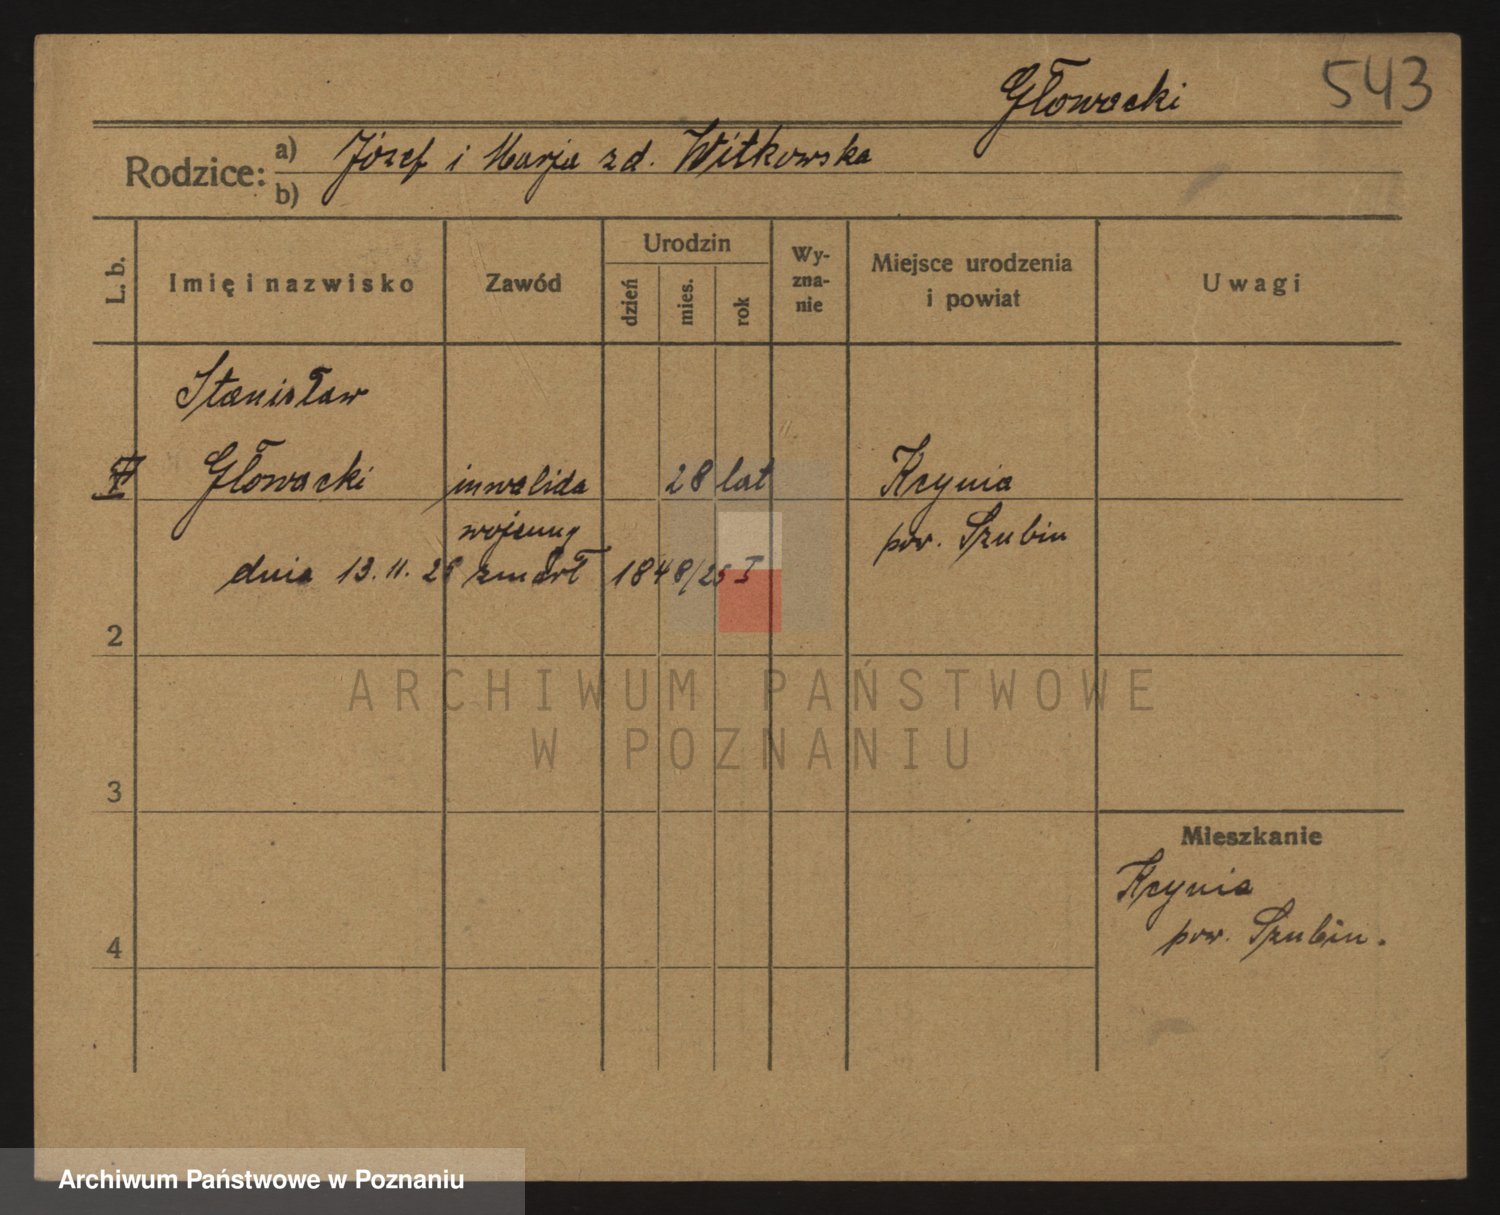 Głowacki
543
Rodzice:
a) Józef i Marja zd. Witkowska
b)
L. b.
Imię i nazwisko
Zawód
Urodzin
dzień
mies.
rok
Wy-
zna-
nie
Miejsce urodzenia
i powiat
Uwagi
Stanisław
Głowacki inwalida 28 lat Kcynia
wojenny pow. Szubin
dnia 13.11.28 zmarł 1848/25 I
2
3
4
Mieszkanie
Kcynia
pow. Szubin.
ARCHIWUM PAŃSTWOWE
W POZNANIU
Archiwum Państwowe w Poznaniu